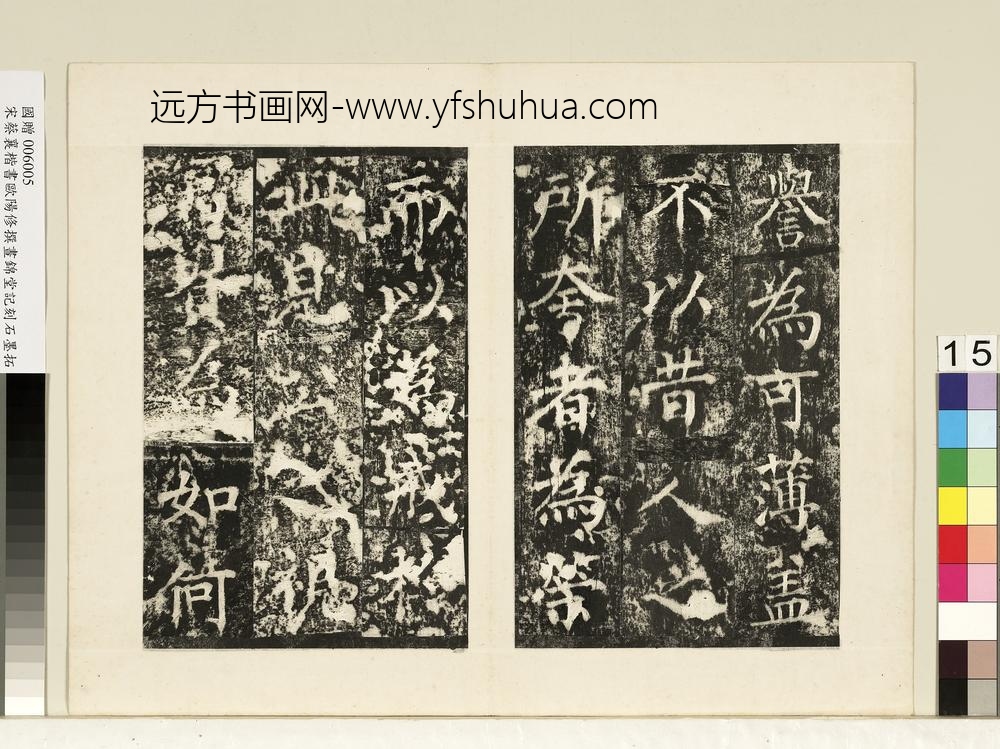 远方书画网-www.yfshuhua.com
國贈006005
宋蔡襄楷書歐陽修撰晝錦堂記刻石墨拓
15
譽為可薄蓋
不以昔人之
所夸者為榮
而以為戒於
此見公之視
富貴為如何